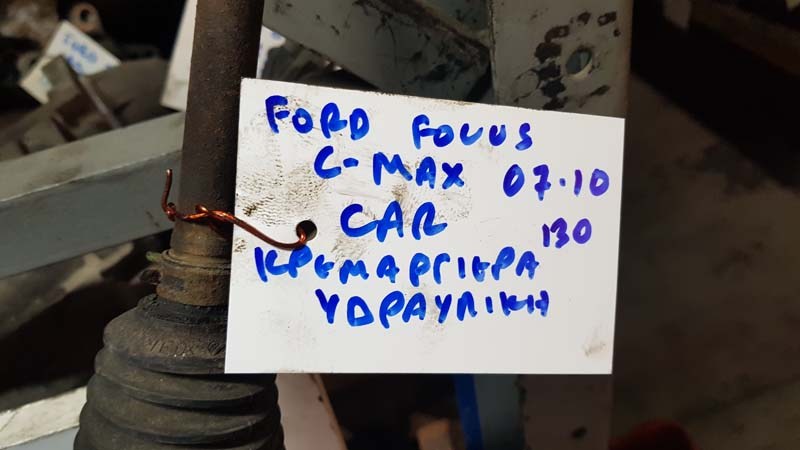 FORD FOCUS
C-MAX 07.10
CAR 130
ΚΡΕΜΑΡΓΙΕΡΑ
ΥΔΡΑΥΛΙΚΗ
FORD